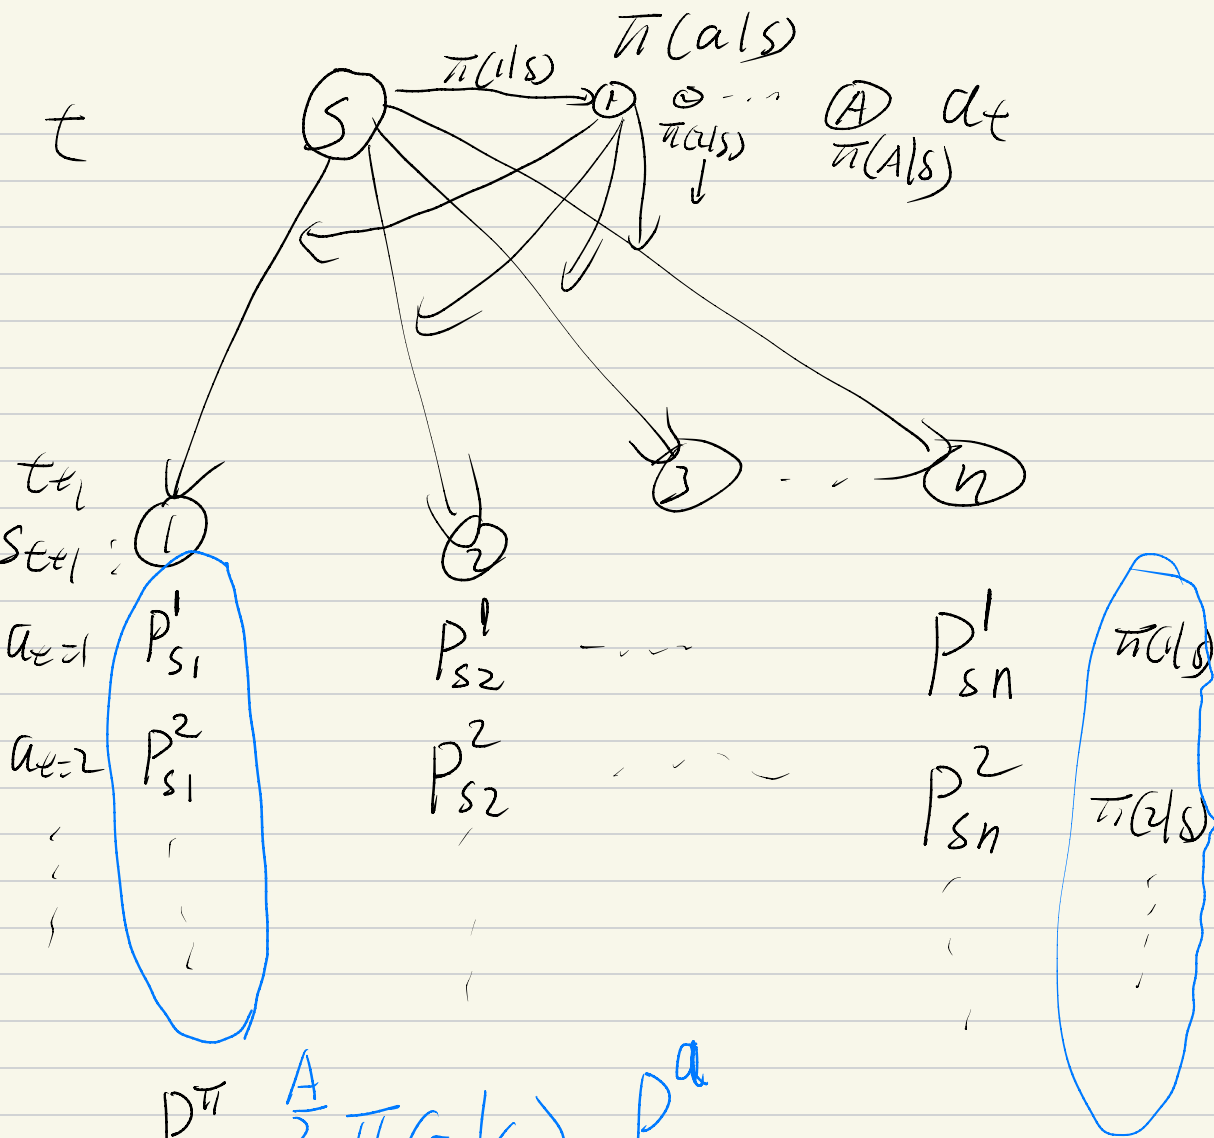 π(a|s)
t S π(1|s) 1 2 ... A a_t
π(2|s) π(A|s)
t+1 3 ... n
S_{t+1} : 1 2
a_{t=1} P^1_{s1} P^1_{s2} ... P^1_{sn} π(1|s)
a_{t=2} P^2_{s1} P^2_{s2} ... P^2_{sn} π(2|s)
P^π A π( P^a